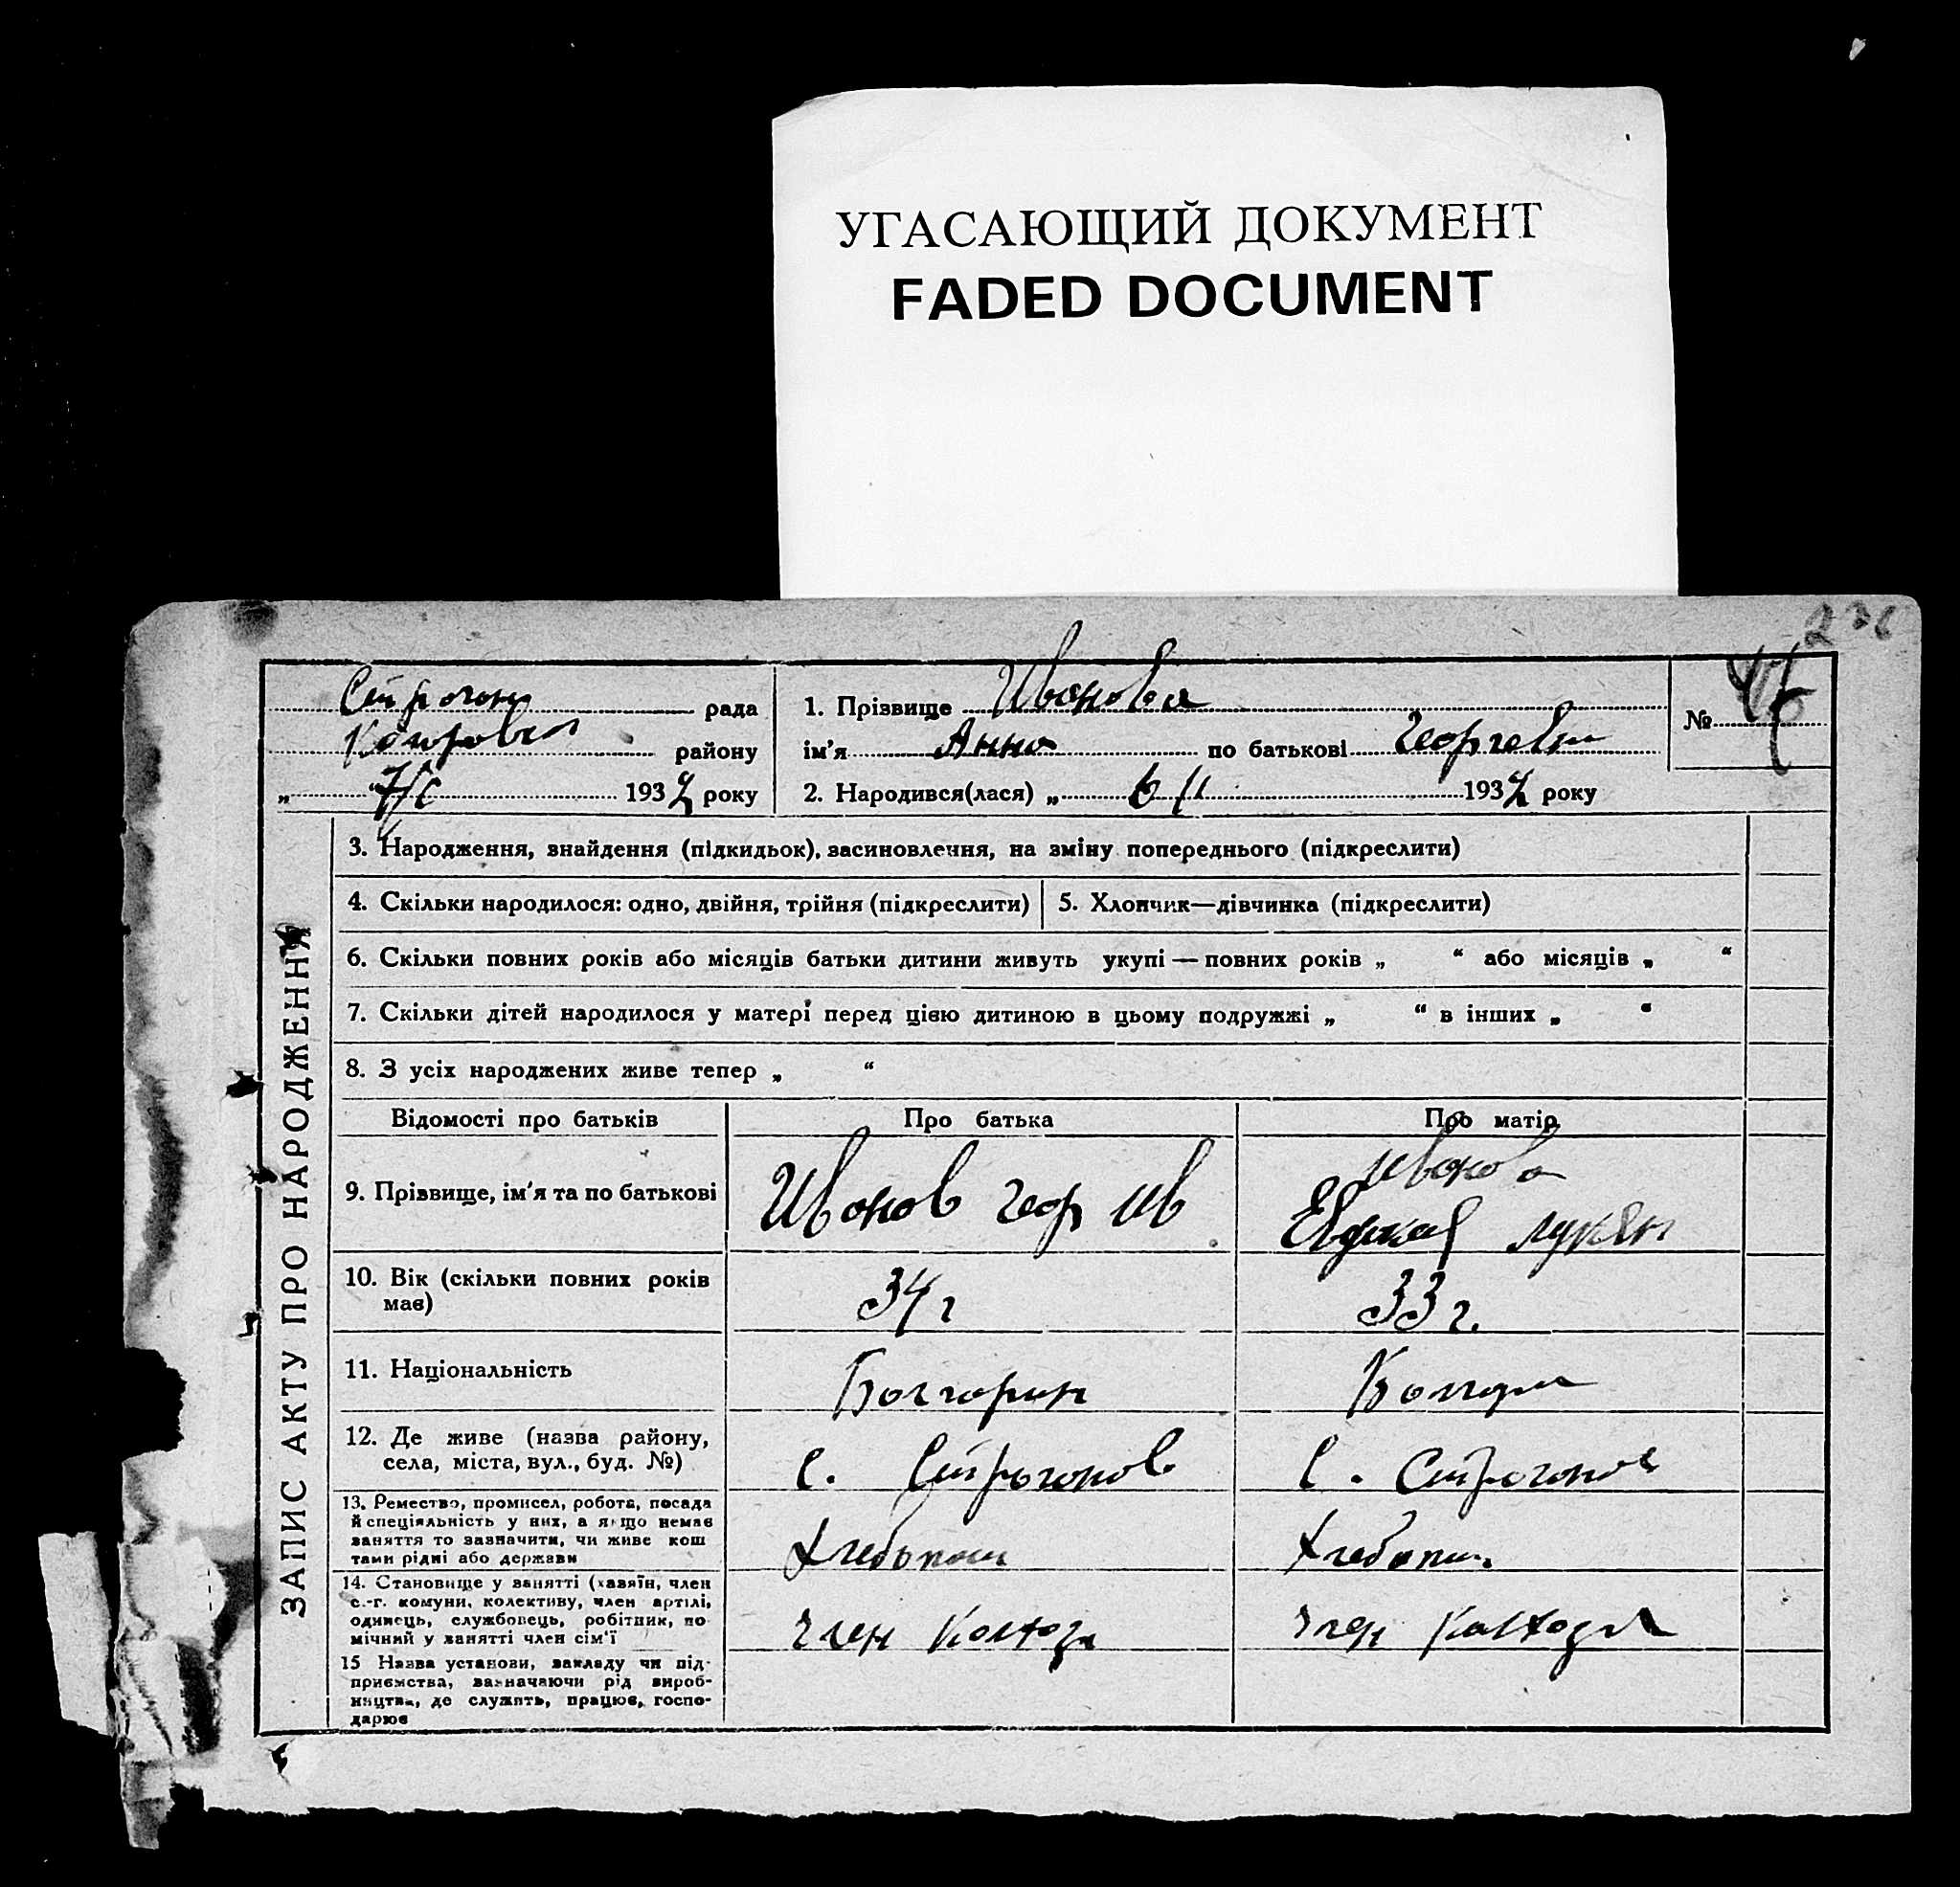 УГАСАЮЩИЙ ДОКУМЕНТ
FADED DOCUMENT
236
рада
району
193 року
1. Прізвище Иванова
ім'я Анна по батькові Георгевн
2. Народився(лася) „ 6/II 193 року
№ 46
ЗАПИС АКТУ ПРО НАРОДЖЕННЯ
3. Народження, знайдення (підкидьок), засиновлення, на зміну попереднього (підкреслити)
4. Скільки народилося: одно, двійня, трійня (підкреслити)
5. Хлопчик—дівчинка (підкреслити)
6. Скільки повних років або місяців батьки дитини живуть укупі — повних років „ “ або місяців „ “
7. Скільки дітей народилося у матері перед цією дитиною в цьому подружжі „ “ в інших „ “
8. З усіх народжених живе тепер „ “
Відомості про батьків
Про батька
Про матір
9. Прізвище, ім'я та по батькові
Иванов Геор Ив
Иванова
Лукян
10. Вік (скільки повних років
має)
34 г
33 г.
11. Національність
Болгарин
12. Де живе (назва району,
села, міста, вул., буд. №)
с. Строганов
с. Строганов
13. Ремество, промисел, робота, посада
й спеціяльність у них, а якщо немає
заняття то зазначити, чи живе кош
тами рідні або держави
Хлебопаш
Хлебопаш
14. Становище у занятті (хазяїн, член
с.-г. комуни, колективу, член артілі,
одинець, службовець, робітник, по
мічний у занятті член сім'ї
член колхоза
член колхоза
15 Назва установи, закладу чи під-
приємства, зазначаючи рід вироб-
ництва, де служить, працює, госпо-
дарює